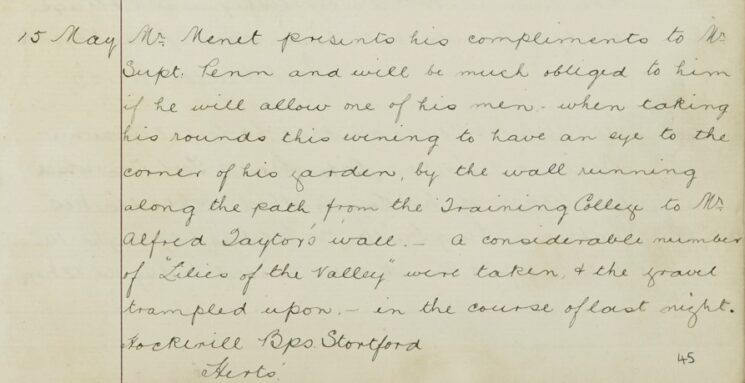 15 May Mr. Menet presents his compliments to Mr
Supt. Penn and will be much obliged to him
if he will allow one of his men - when taking
his rounds this evening to have an eye to the
corner of his garden, by the wall running
along the path from the Training College to Mr.
Alfred Taylor's wall. - A considerable number
of "Lilies of the Valley" were taken, & the gravel
trampled upon, - in the course of last night.
Hockerill Bps. Stortford
Herts.
45